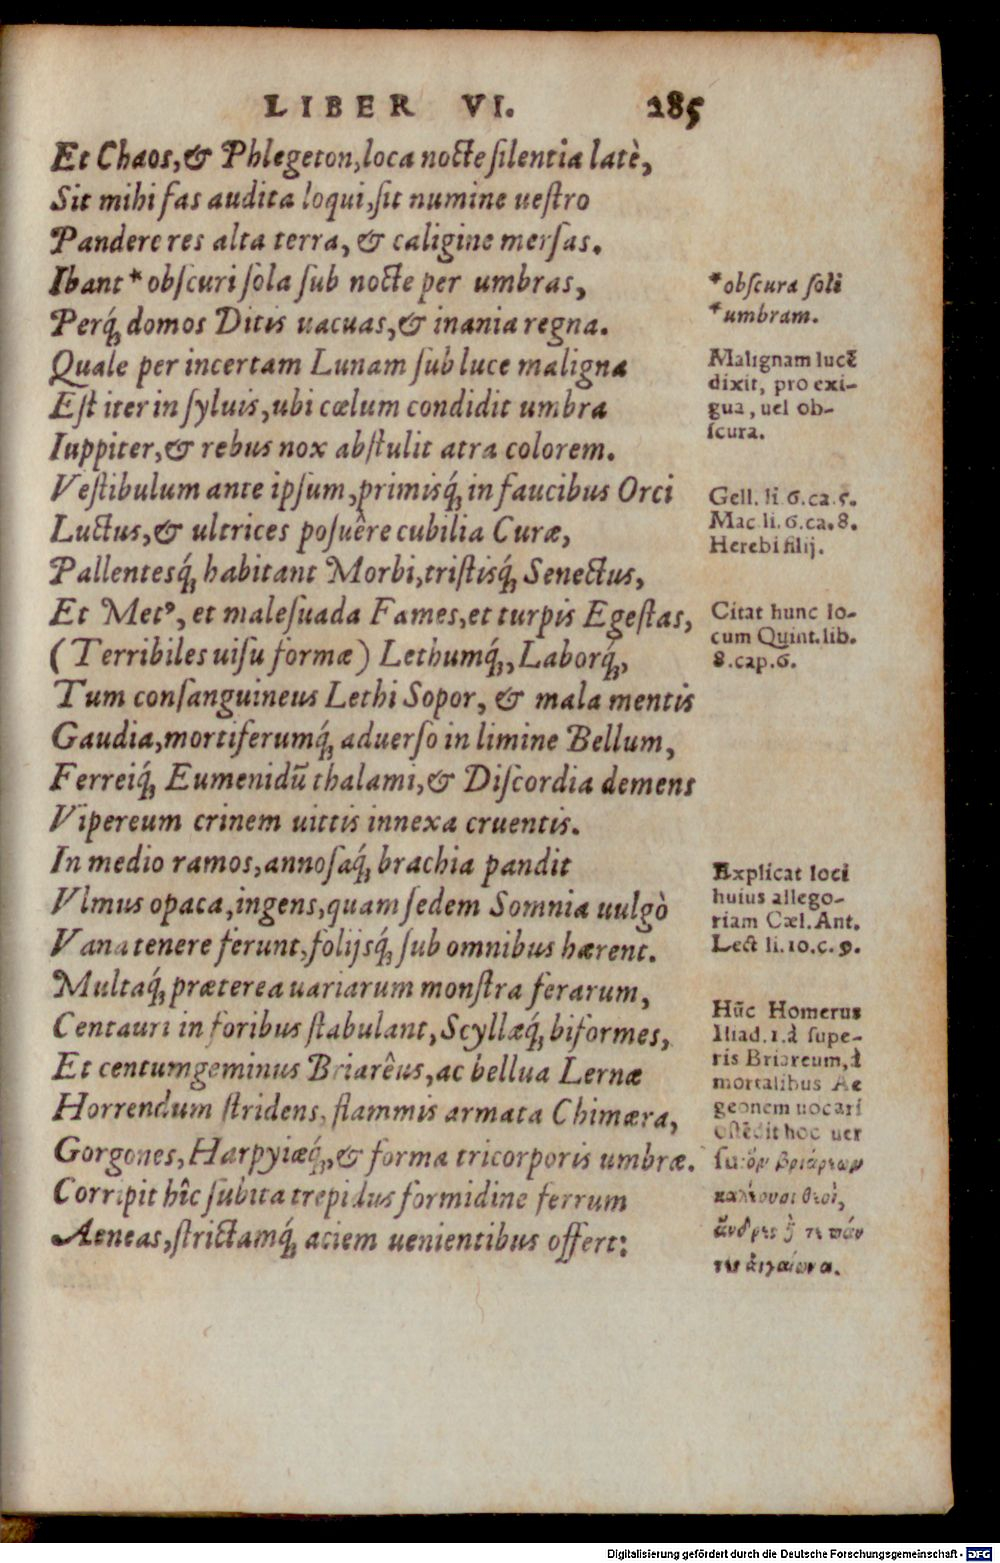 LIBER VI. 285
Et Chaos, & Phlegeton, loca nocte silentia latè,
Sit mihi fas audita loqui, sit numine uestro
Pandere res alta terra, & caligine mersas.
Ibant * obscuri sola sub nocte per umbras,
Perq́; domos Ditis uacuas, & inania regna.
Quale per incertam Lunam sub luce maligna
Est iter in syluis, ubi cœlum condidit umbra
Iuppiter, & rebus nox abstulit atra colorem.
Vestibulum ante ipsum, primisq́; in faucibus Orci
Luctus, & ultrices posuêre cubilia Curæ,
Pallentesq́; habitant Morbi, tristisq́; Senectus,
Et Metꝰ, et malesuada Fames, et turpis Egestas,
(Terribiles uisu formæ) Lethumq́;, Laborq́;,
Tum consanguineus Lethi Sopor, & mala mentis
Gaudia, mortiferumq́; aduerso in limine Bellum,
Ferreiq́; Eumenidū thalami, & Discordia demens
Vipereum crinem uittis innexa cruentis.
In medio ramos, annosaq́; brachia pandit
Vlmus opaca, ingens, quam sedem Somnia uulgò
Vana tenere ferunt, folijsq́; sub omnibus hærent.
Multaq́; præterea uariarum monstra ferarum,
Centauri in foribus stabulant, Scyllæq́; biformes,
Et centumgeminus Briarêus, ac bellua Lernæ
Horrendum stridens, flammis armata Chimæra,
Gorgones, Harpyiæq́;, & forma tricorporis umbræ.
Corripit hîc subita trepidus formidine ferrum
Aeneas, strictamq́; aciem uenientibus offert:
*obscura soli
*umbram.
Malignam lucē
dixit, pro exi-
gua, uel ob-
scura.
Gell. li. 6. ca. 5.
Mac. li. 6. ca. 8.
Herebi filij.
Citat hunc lo-
cum Quint. lib.
8. cap. 6.
Explicat loci
huius allego-
riam Cæl. Ant.
Lect li. 10. c. 9.
Hūc Homerus
Iliad. 1. à supe-
ris Briareum, à
mortalibus Ae
geonem uocari
ostēdit hoc uer
su: ὃν βριάρεων
καλέουσι θεοὶ,
ἄνδρες δέ τε πάν
τες αἰγαίωνα.
Digitalisierung gefördert durch die Deutsche Forschungsgemeinschaft - DFG